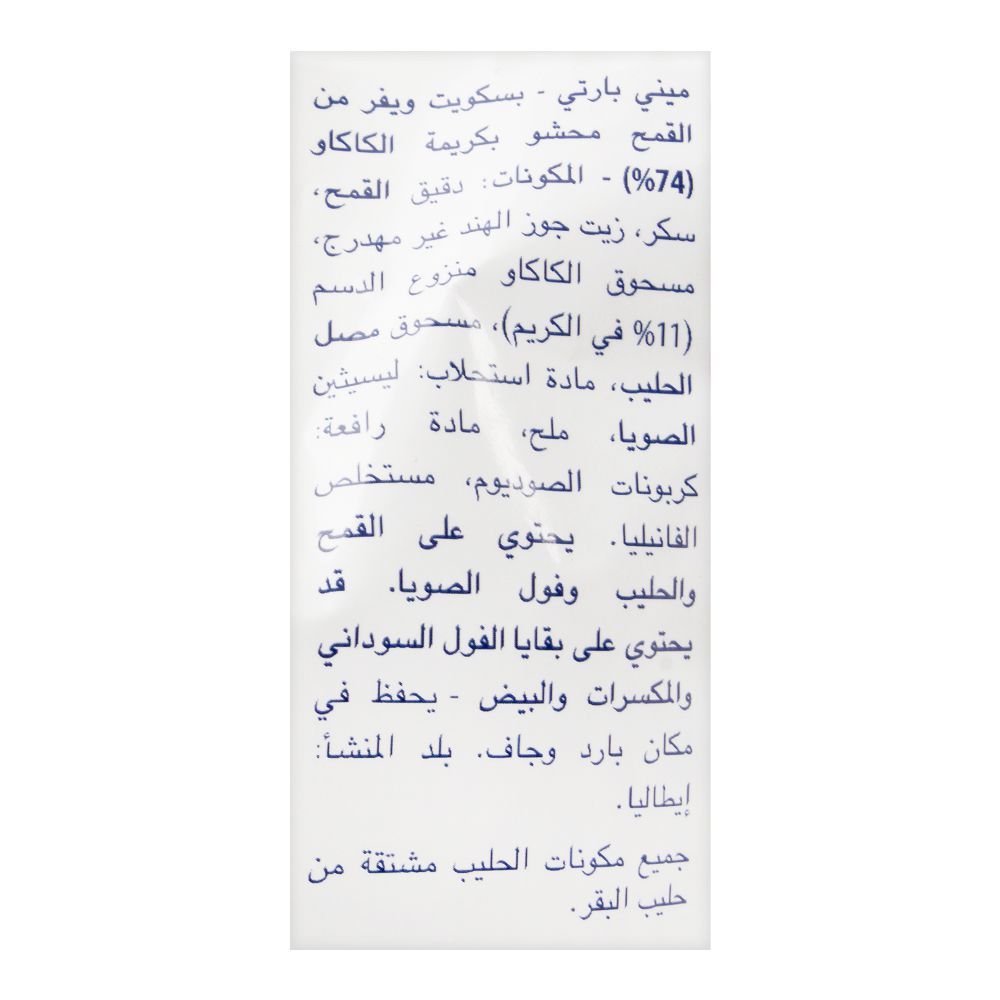 ميني بارتي - بسكويت ويفر من
القمح محشو بكريمة الكاكاو
(74%) - المكونات: دقيق القمح،
سكر، زيت جوز الهند غير مهدرج،
مسحوق الكاكاو منزوع الدسم
(11% في الكريم)، مسحوق مصل
الحليب، مادة استحلاب: ليسيثين
الصويا، ملح، مادة رافعة:
كربونات الصوديوم، مستخلص
الفانيليا. يحتوي على القمح
والحليب وفول الصويا. قد
يحتوي على بقايا الفول السوداني
والمكسرات والبيض - يحفظ في
مكان بارد وجاف. بلد المنشأ:
إيطاليا.
جميع مكونات الحليب مشتقة من
حليب البقر.